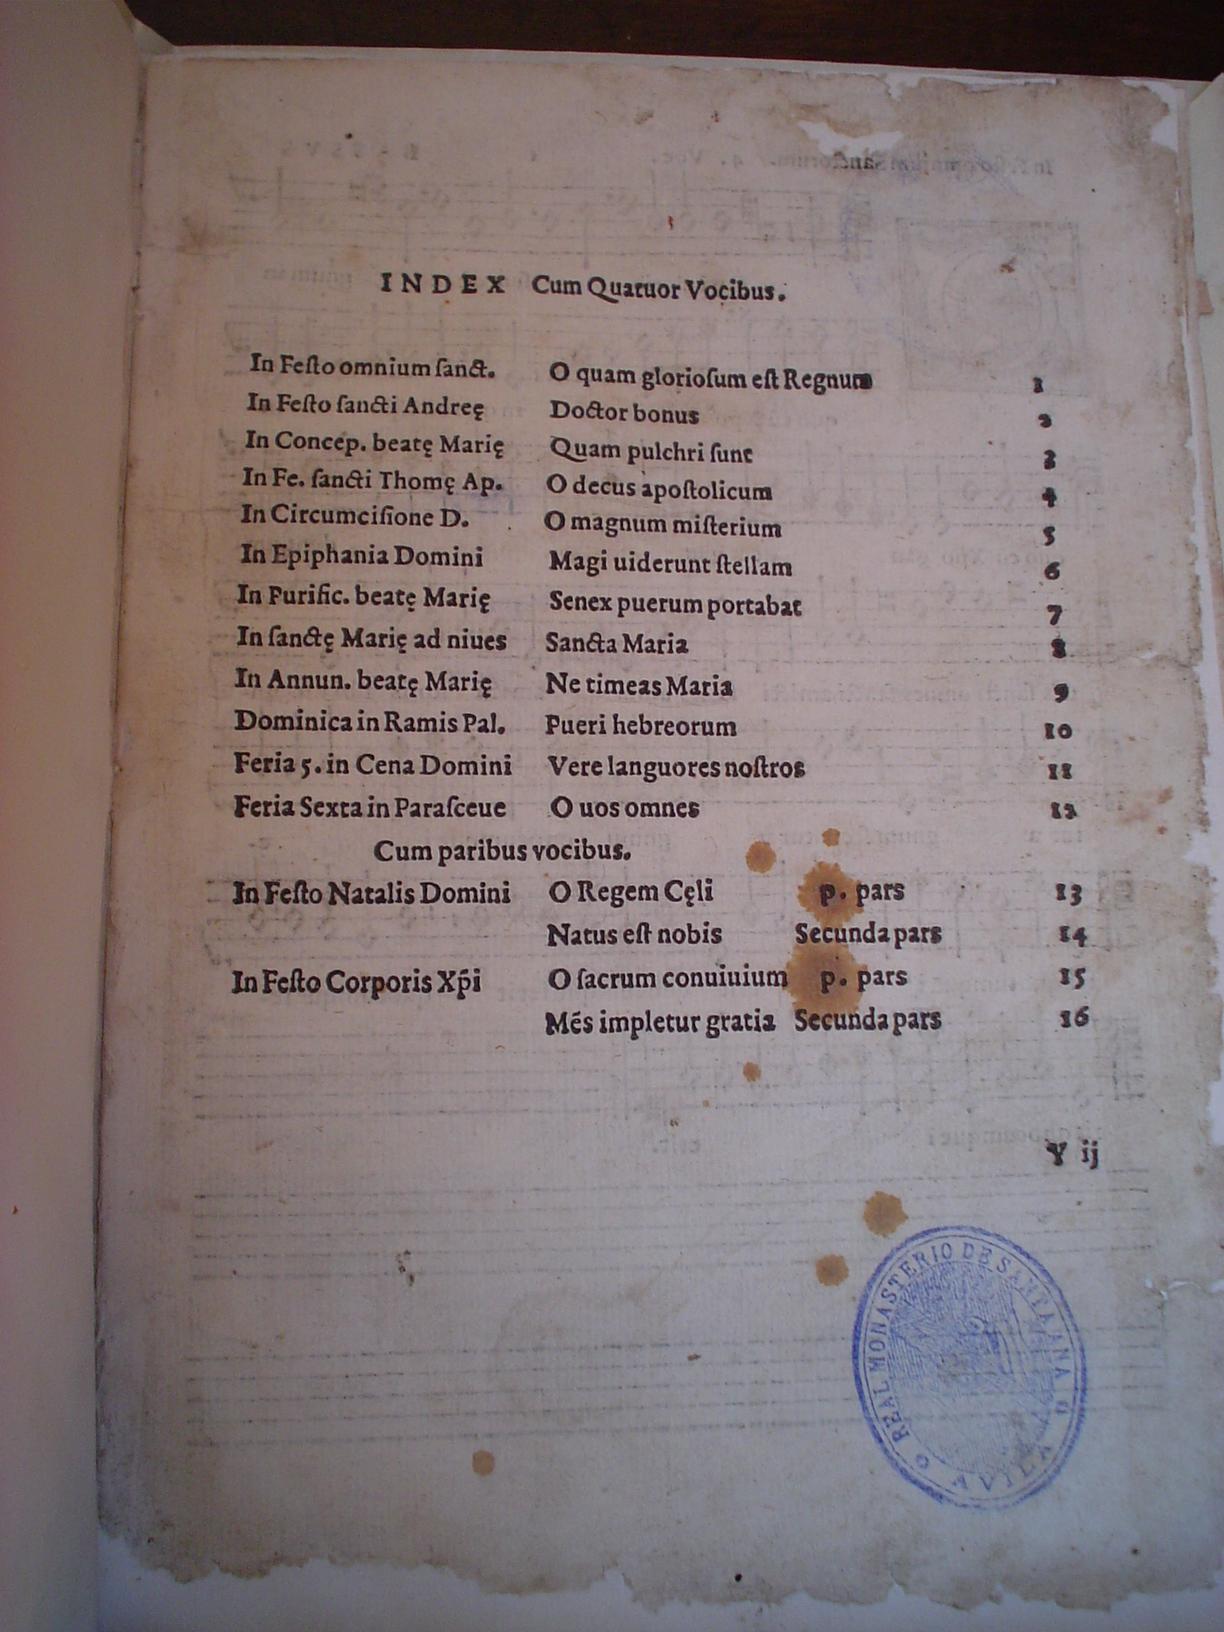 INDEX Cum Quatuor Vocibus.
In Feſto omnium ſanct. O quam glorioſum eſt Regnum 1
In Feſto ſancti Andreę Doctor bonus 2
In Concep. beatę Marię Quam pulchri ſunt 3
In Fe. ſancti Thomę Ap. O decus apoſtolicum 4
In Circumciſione D. O magnum miſterium 5
In Epiphania Domini Magi uiderunt ſtellam 6
In Purific. beatę Marię Senex puerum portabat 7
In ſanctę Marię ad niues Sancta Maria 8
In Annun. beatę Marię Ne timeas Maria 9
Dominica in Ramis Pal. Pueri hebreorum 10
Feria 5. in Cena Domini Vere languores noſtros 11
Feria Sexta in Paraſceue O uos omnes 12
Cum paribus vocibus.
In Feſto Natalis Domini O Regem Cęli p. pars 13
Natus eſt nobis Secunda pars 14
In Feſto Corporis Xp̄i O ſacrum conuiuium p. pars 15
Més impletur gratia Secunda pars 16
Y ij
REAL MONASTERIO DE SANTA ANA
AVILA